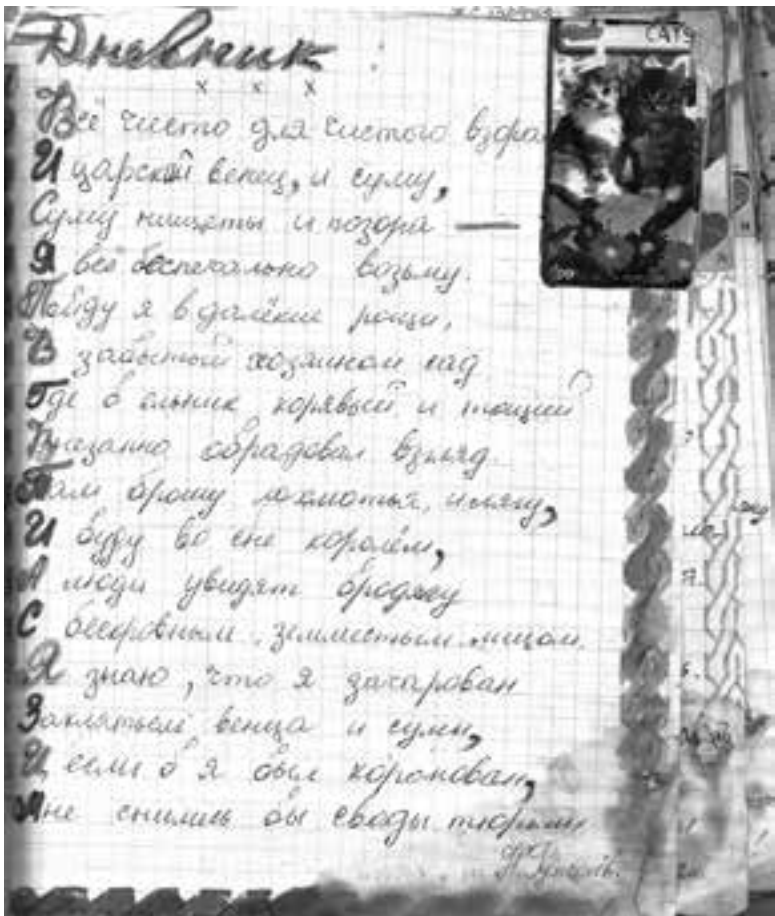 Дневник:
х х х
Всё чисто для чистого взора
И царский венец, и суму,
Суму нищеты и позора —
Я всё беспечально возьму.
Пойду я в далёкие рощи,
В забытый хозяином сад,
Где б ельник корявый и тощий
Внезапно обрадовал взгляд.
Там брошу лохмотья, и лягу,
И буду во сне королём,
А люди увидят бродягу
С бескровным, землистым лицом.
Я знаю, что я зачарован
Заклятьем венца и сумы,
И если б я был коронован,
Мне снились бы своды тюрьмы
CATS